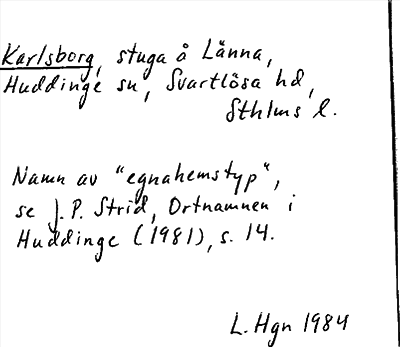 Karlsborg, stuga å Länna,
Huddinge sn, Svartlösa hd,
Sthlms l.
Namn av "egnahemstyp",
se J.P. Strid, Ortnamnen i
Huddinge (1981), s. 14.
L. Hgn 1984